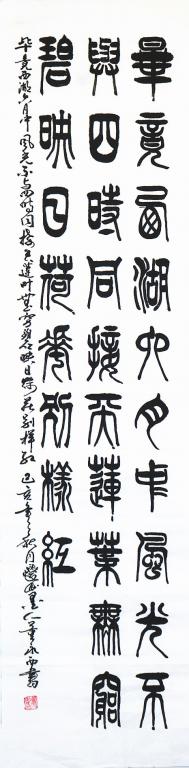 畢竟西湖六月中風光不
與四時同接天蓮葉無窮
碧映日荷花別樣紅
毕竟西湖六月中風光不与四时同接天蓮叶無穷碧映日荷花别樣红 己亥